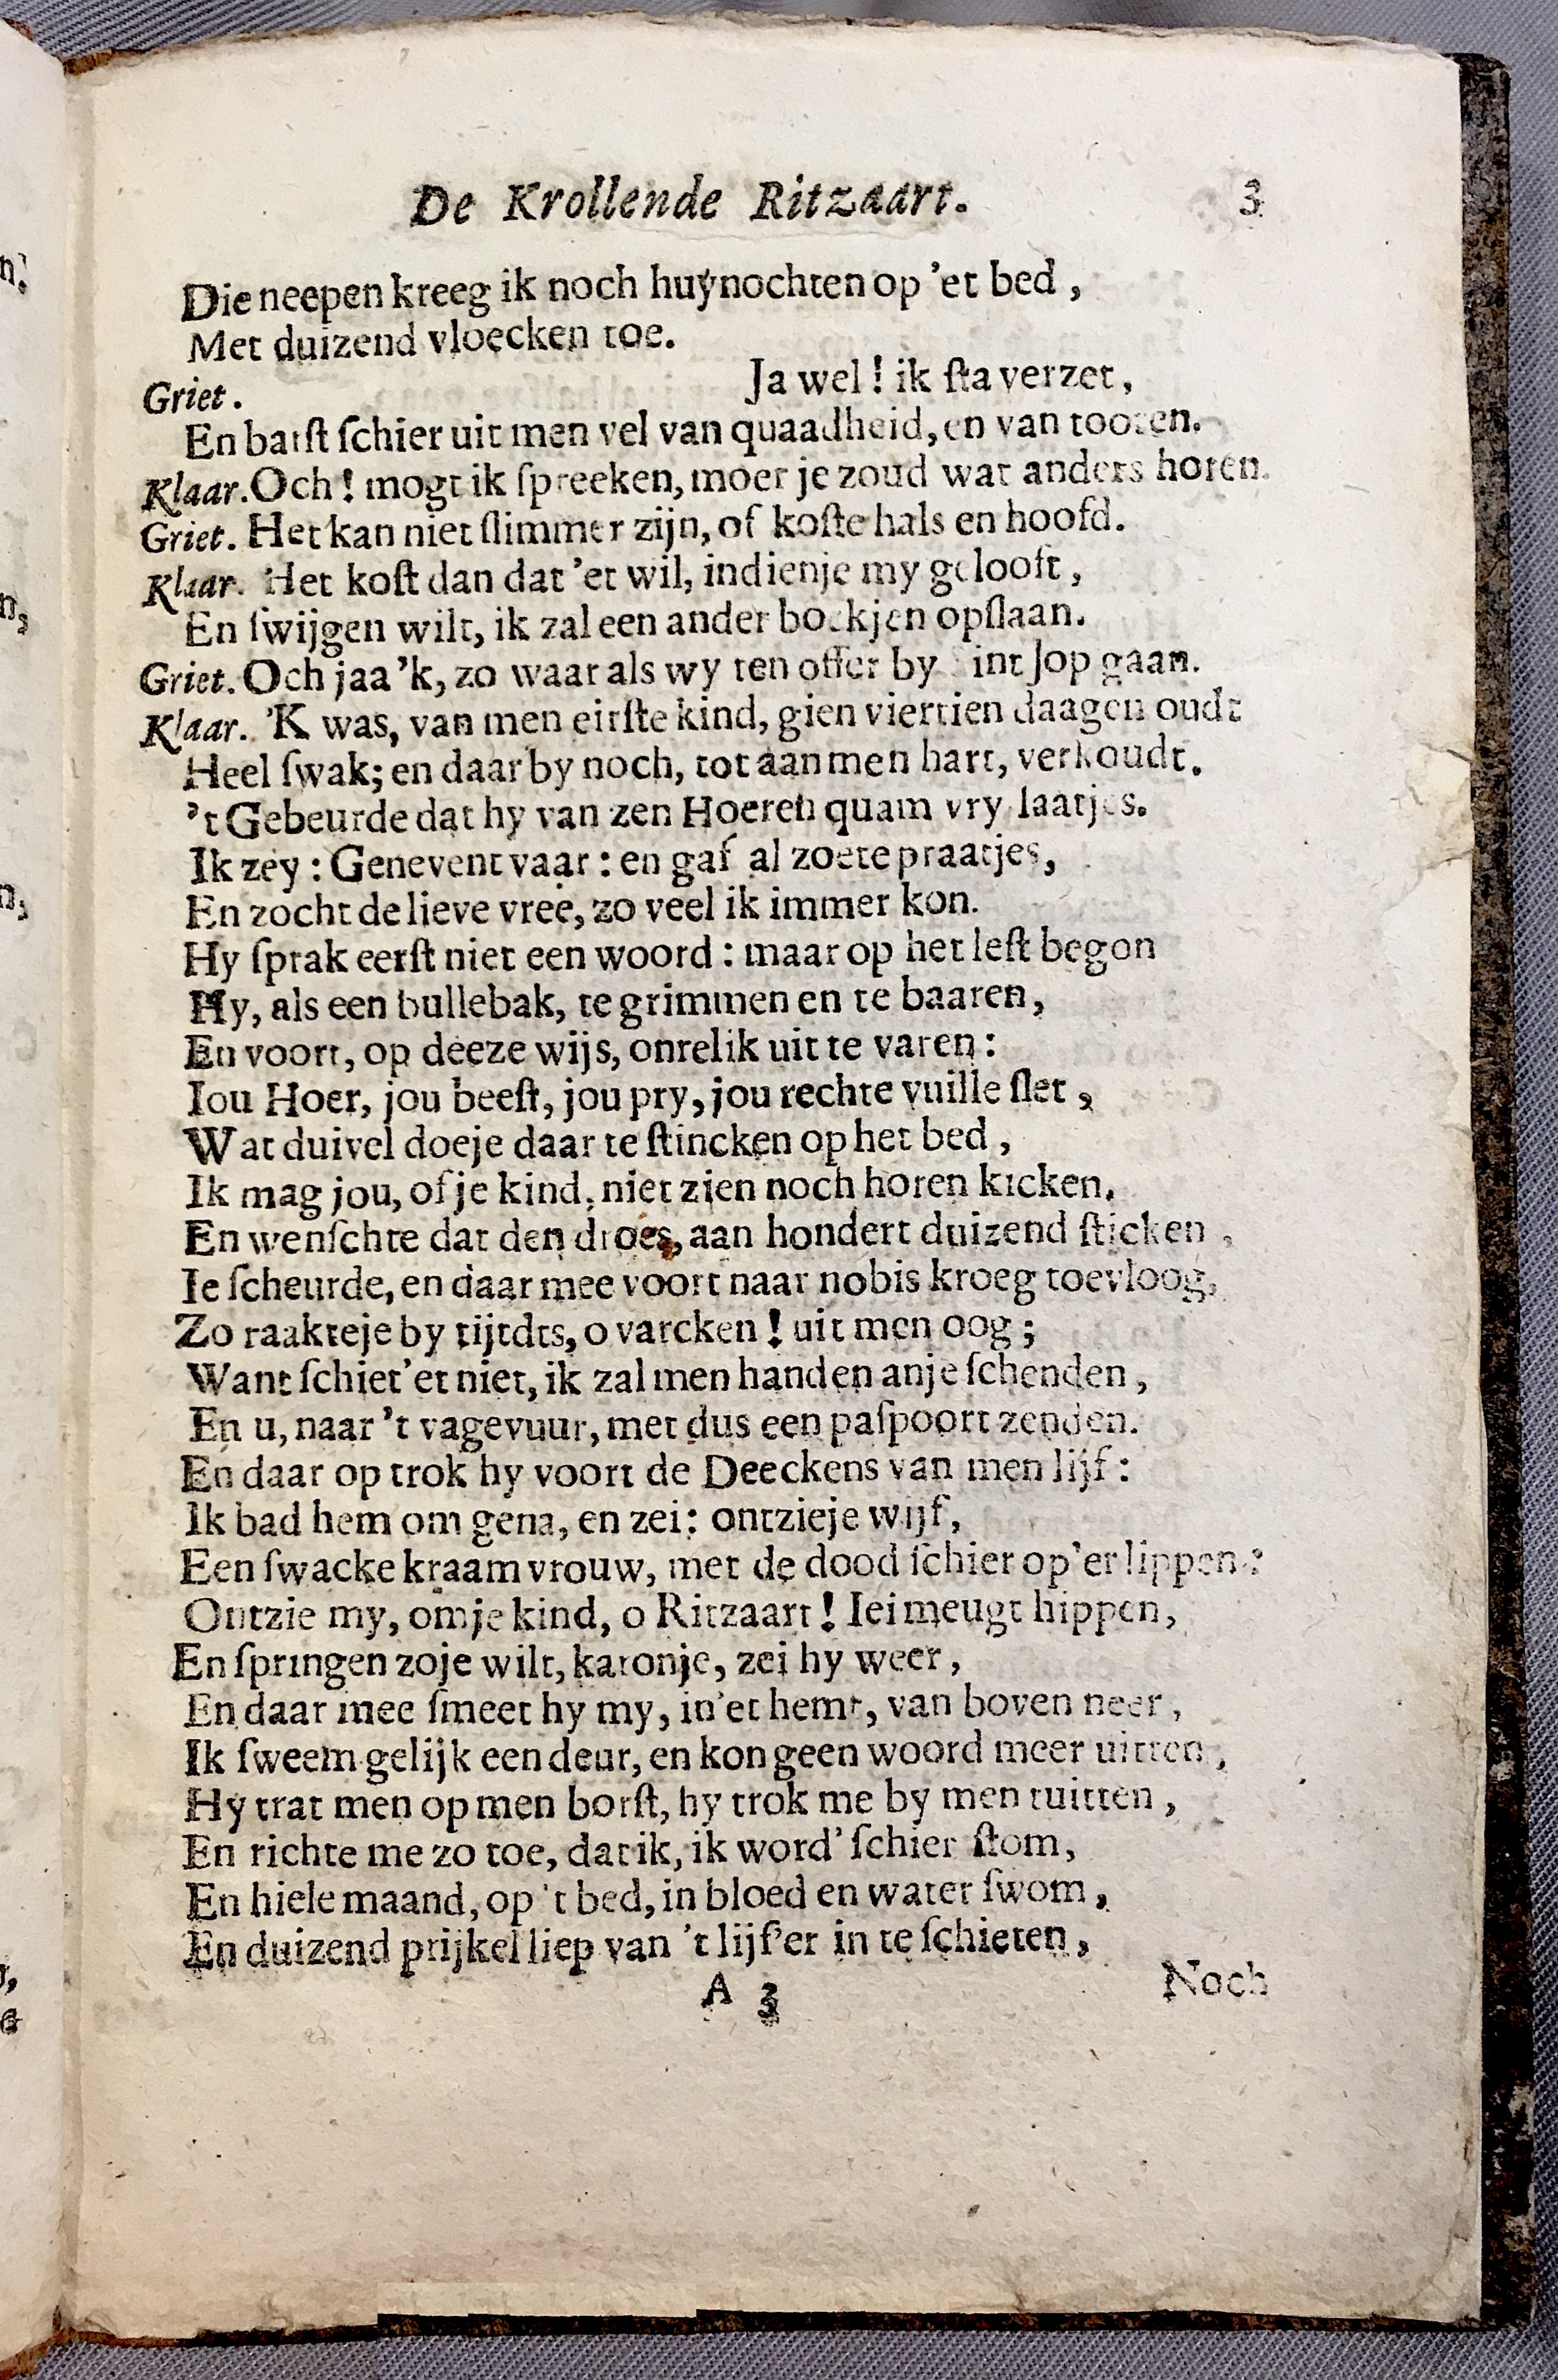 De Krollende Ritzaart. 3
Die neepen kreeg ik noch huÿnochten op 'et bed,
Met duizend vloecken toe.
Griet. Ja wel! ik ſta verzet,
En barſt ſchier uit men vel van quaadheid, en van tooren.
Klaar. Och! mogt ik ſpreeken, moer je zoud wat anders horen.
Griet. Het kan niet ſlimmer zijn, of koſte hals en hoofd.
Klaar. Het koſt dan dat 'et wil, indienje my gelooft,
En ſwijgen wilt, ik zal een ander boekjen opſlaan.
Griet. Och jaa 'k, zo waar als wy ten offer by int Jop gaan.
Klaar. 'K was, van men eirſte kind, gien viertien daagen oudt
Heel ſwak; en daar by noch, tot aan men hart, verkoudt.
't Gebeurde dat hy van zen Hoeren quam vry laatjes.
Ik zey: Genevent vaar: en gaf al zoete praatjes,
En zocht de lieve vree, zo veel ik immer kon.
Hy ſprak eerſt niet een woord: maar op het leſt begon
Hy, als een bullebak, te grimmen en te baaren,
En voort, op deeze wijs, onrelik uit te varen:
Iou Hoer, jou beeſt, jou pry, jou rechte vuille ſlet,
Wat duivel doeje daar te ſtincken op het bed,
Ik mag jou, of je kind, niet zien noch horen kicken,
En wenſchte dat den droes, aan hondert duizend ſticken,
Ie ſcheurde, en daar mee voort naar nobis kroeg toevloog,
Zo raakteje by tijtdts, o varcken! uit men oog;
Want ſchiet' et niet, ik zal men handen an je ſchenden,
En u, naar 't vagevuur, met dus een paſpoort zenden.
En daar op trok hy voort de Deeckens van men lijf:
Ik bad hem om gena, en zei: ontzieje wijf,
Een ſwacke kraamvrouw, met de dood ſchier op 'er lippen:
Ontzie my, om je kind, o Ritzaart! Iei meugt hippen,
En ſpringen zoje wilt, katonje, zei hy weer,
En daar mee ſmeet hy my, in 'et hemt, van boven neer,
Ik ſweem gelijk een deur, en kon geen woord meer uitten,
Hy trat men op men borſt, hy trok me by men tuitten,
En richte me zo toe, dat ik, ik word' ſchier ſtom,
En hiele maand, op 't bed, in bloed en water ſwom,
En duizend prijkel liep van 't lijf 'er in te ſchieten,
A 3 Noch